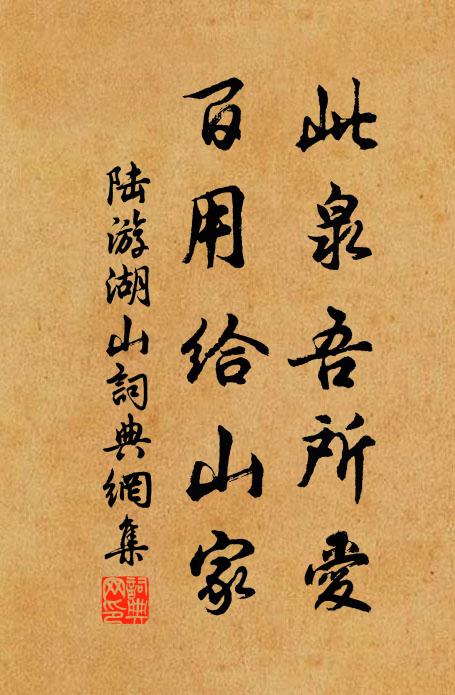 此泉吾所愛
百用給山家
陆游湖山詞典網集
詞典网印